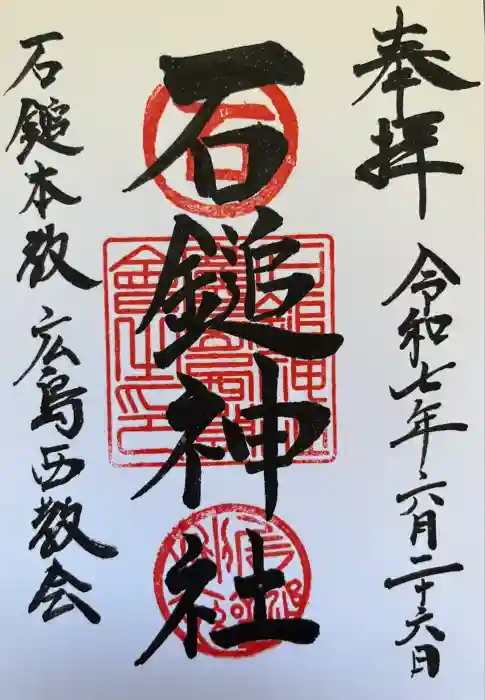 奉拝
令和七年六月二十六日
石鎚神社
石鎚本教 広島西教会